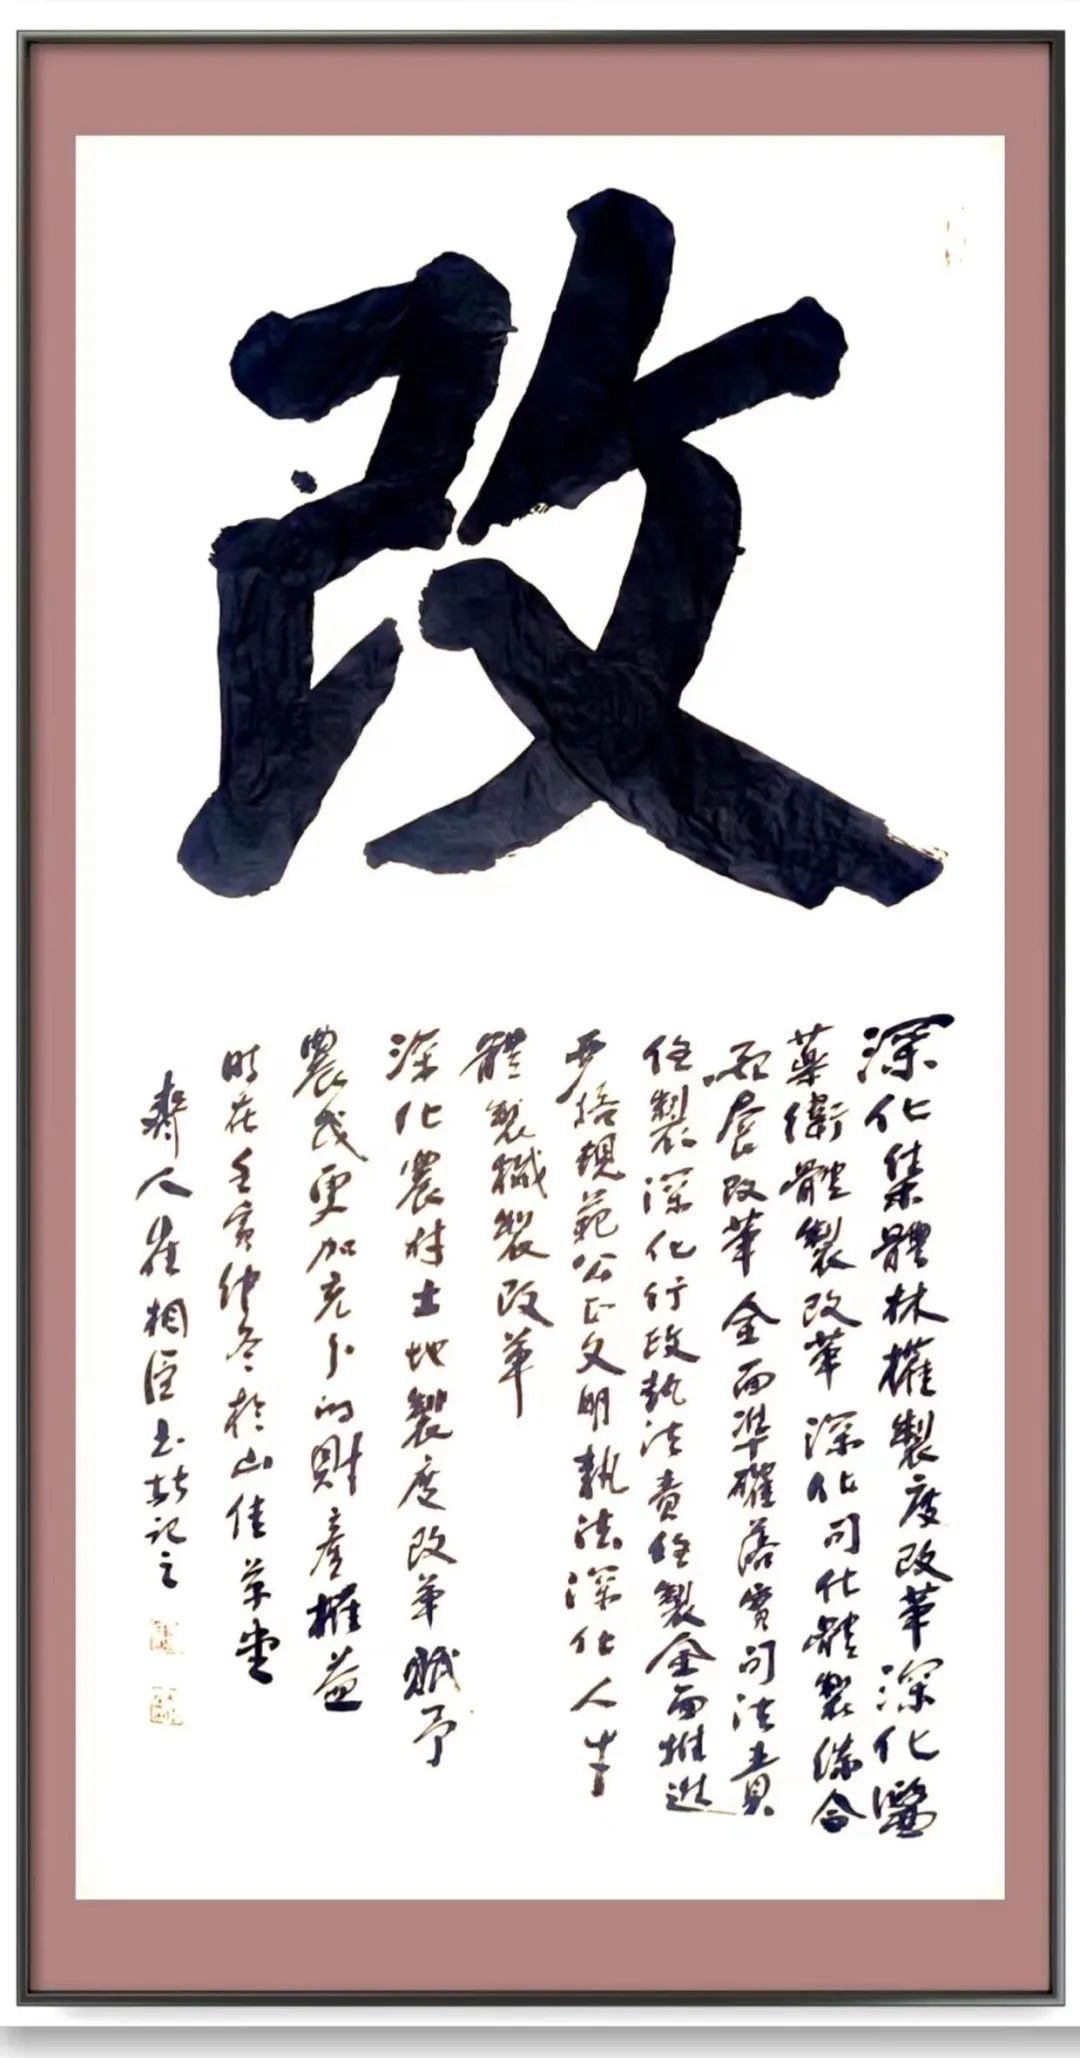 改
深化集體林權製度改革深化醫
藥衛體製改革深化司化體製綜合
配套改革全面準確落實司法責
任製深化行政執法責任製全面推進
嚴格規範公正文明執法深化人才
體製機製改革
深化農村土地製度改革賦予
農民更加充分的財產權益
時在壬寅仲冬於山佳草堂
齊人崔相臣書此記之